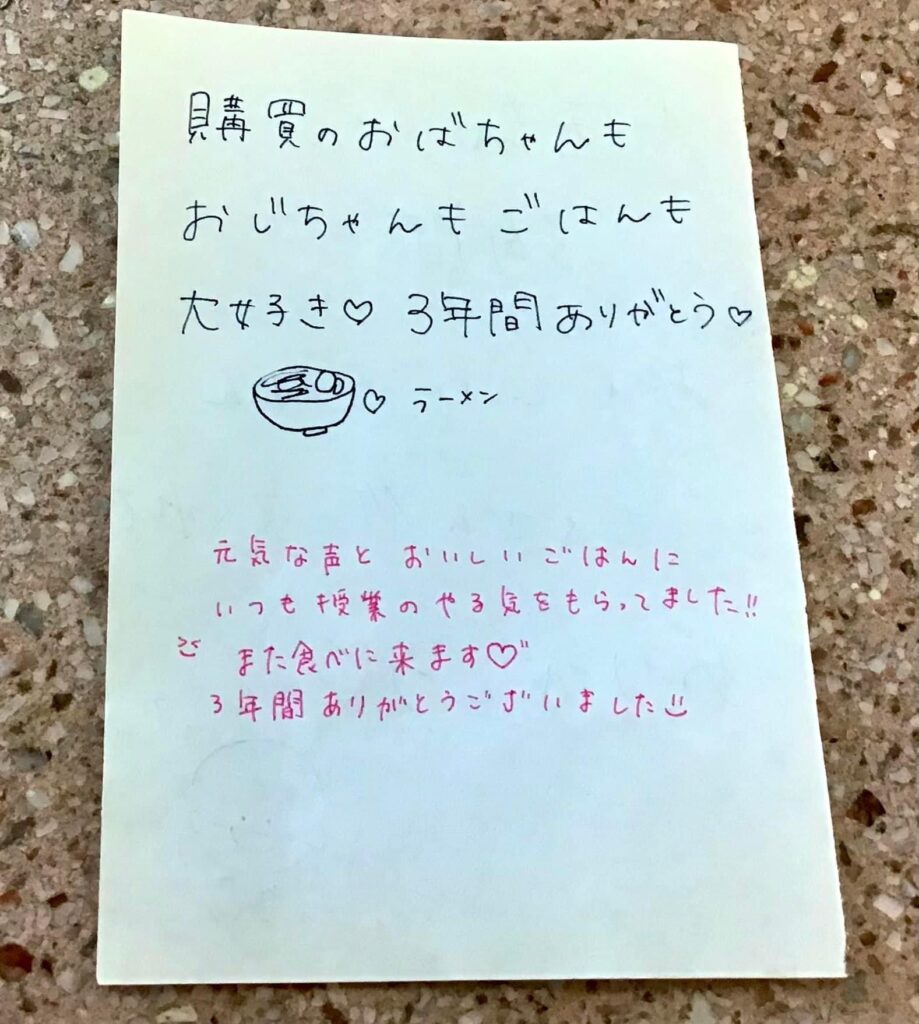 購買のおばちゃんも
おじちゃんもごはんも
大好き♡ 3年間ありがとう♡
♡ ラーメン
元気な声と おいしいごはんに
いつも授業のやる気をもらってました!!
また食べに来ます♡
3年間ありがとうございました